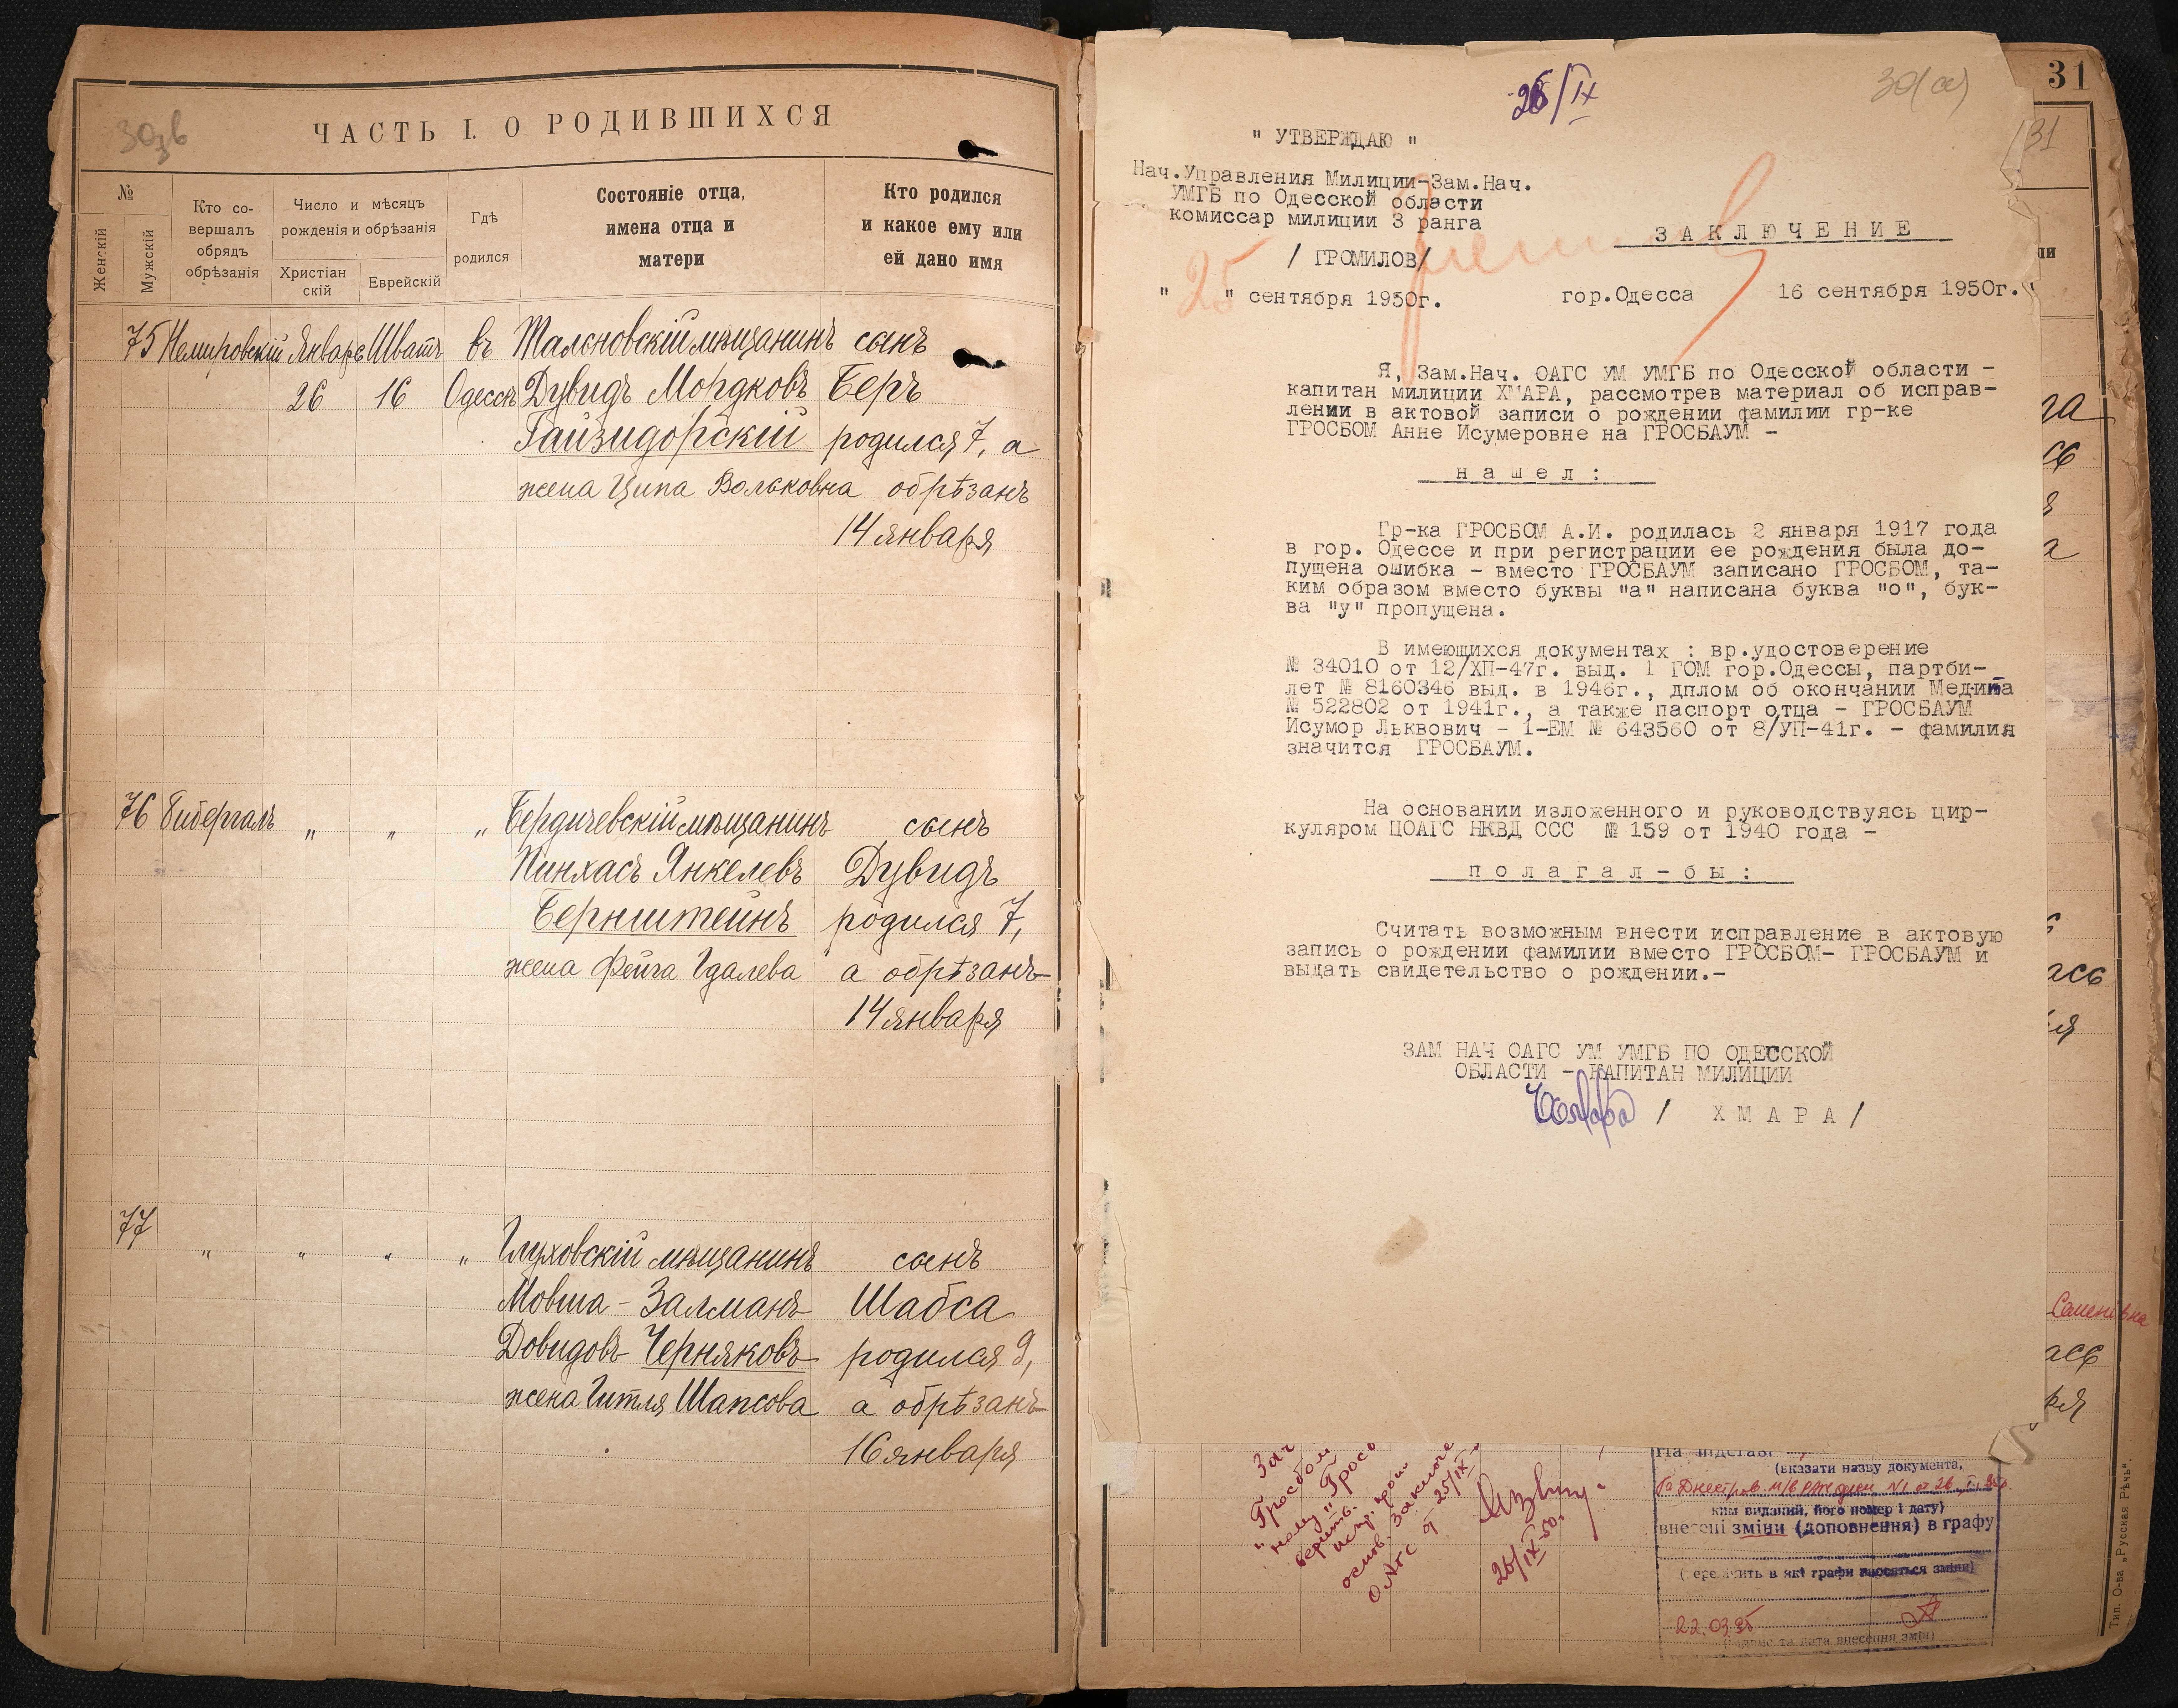 30зв
ЧАСТЬ I. О РОДИВШИХСЯ
№
Женскій
Мужскій
Кто со-
вершалъ
обрядъ
обрѣзанія
Число и мѣсяцъ
рожденія и обрѣзанія
Христіан
скій
Еврейскій
Гдѣ
родился
Состояніе отца,
имена отца и
матери
Кто родился
и какое ему или
ей дано имя
75 Немировскій Январь Шватъ въ Тальновскій мѣщанинъ сынъ
26 16 Одессѣ Дувидъ Мордковъ Беръ
Гайзидорскій родился 7, а
жена Ципа Вольковна обрѣзанъ
14 января
76 Бибергалъ " " " Бердичевскій мѣщанинъ сынъ
Пинхасъ Янкелевъ Дувидъ
Бернштейнъ родился 7,
жена Фейга Гдалева а обрѣзанъ
14 января
77 " " " " Глуховскій мѣщанинъ сынъ
Мовша-Залманъ Шабса
Довидовъ Черняковъ родился 9,
жена Гитля Шапсова а обрѣзанъ
16 января
26/IX
30(а)
31
31
" УТВЕРЖДАЮ "
Нач.Управления Милиции-Зам.Нач.
УМГБ по Одесской области
комиссар милиции 3 ранга
/ ГРОМИЛОВ/
" 25 " сентября 1950г.
ЗАКЛЮЧЕНИЕ
гор.Одесса 16 сентября 1950г.
Я, Зам.Нач. ОАГС УМ УМГБ по Одесской области -
капитан милиции ХМАРА, рассмотрев материал об исправ-
лении в актовой записи о рождении фамилии гр-ке
ГРОСБОМ Анне Исумеровне на ГРОСБАУМ -
нашел:
Гр-ка ГРОСБОМ А.И. родилась 2 января 1917 года
в гор. Одессе и при регистрации ее рождения была до-
пущена ошибка - вместо ГРОСБАУМ записано ГРОСБОМ, та-
ким образом вместо буквы "а" написана буква "о", бук-
ва "у" пропущена.
В имеющихся документах : вр.удостоверение
№ 34010 от 12/ХП-47г. выд. 1 ГОМ гор.Одессы, партби-
лет № 8160346 выд. в 1946г., дплом об окончании Медина
№ 522802 от 1941г., а также паспорт отца - ГРОСБАУМ
Исумор Льквович - 1-ЕМ № 643560 от 8/УП-41г. - фамилия
значится ГРОСБАУМ.
На основании изложенного и руководствуясь цир-
куляром ЦОАГС НКВД ССС № 159 от 1940 года -
полагал-бы:
Считать возможным внести исправление в актовую
запись о рождении фамилии вместо ГРОСБОМ- ГРОСБАУМ и
выдать свидетельство о рождении.-
ЗАМ НАЧ ОАГС УМ УМГБ ПО ОДЕССКОЙ
ОБЛАСТИ - КАПИТАН МИЛИЦИИ
/ ХМАРА/
ли
на
сь
я
а
ась
ья
Семенівна
ась
ря
Зач
Гросбом
"Грос
верить.
испр.
основ. заключе
ОАГС от 25/IX
26/IX-50.
На підставі
(вказати назву документа,
ким виданий, його номер і дату)
внесені зміни (доповнення) в графу
( ерелічить в які графи вносяться зміни)
22.03.95
(підпис та дата внесення змін)
Тип. О-ва „Русская Рѣчь“.